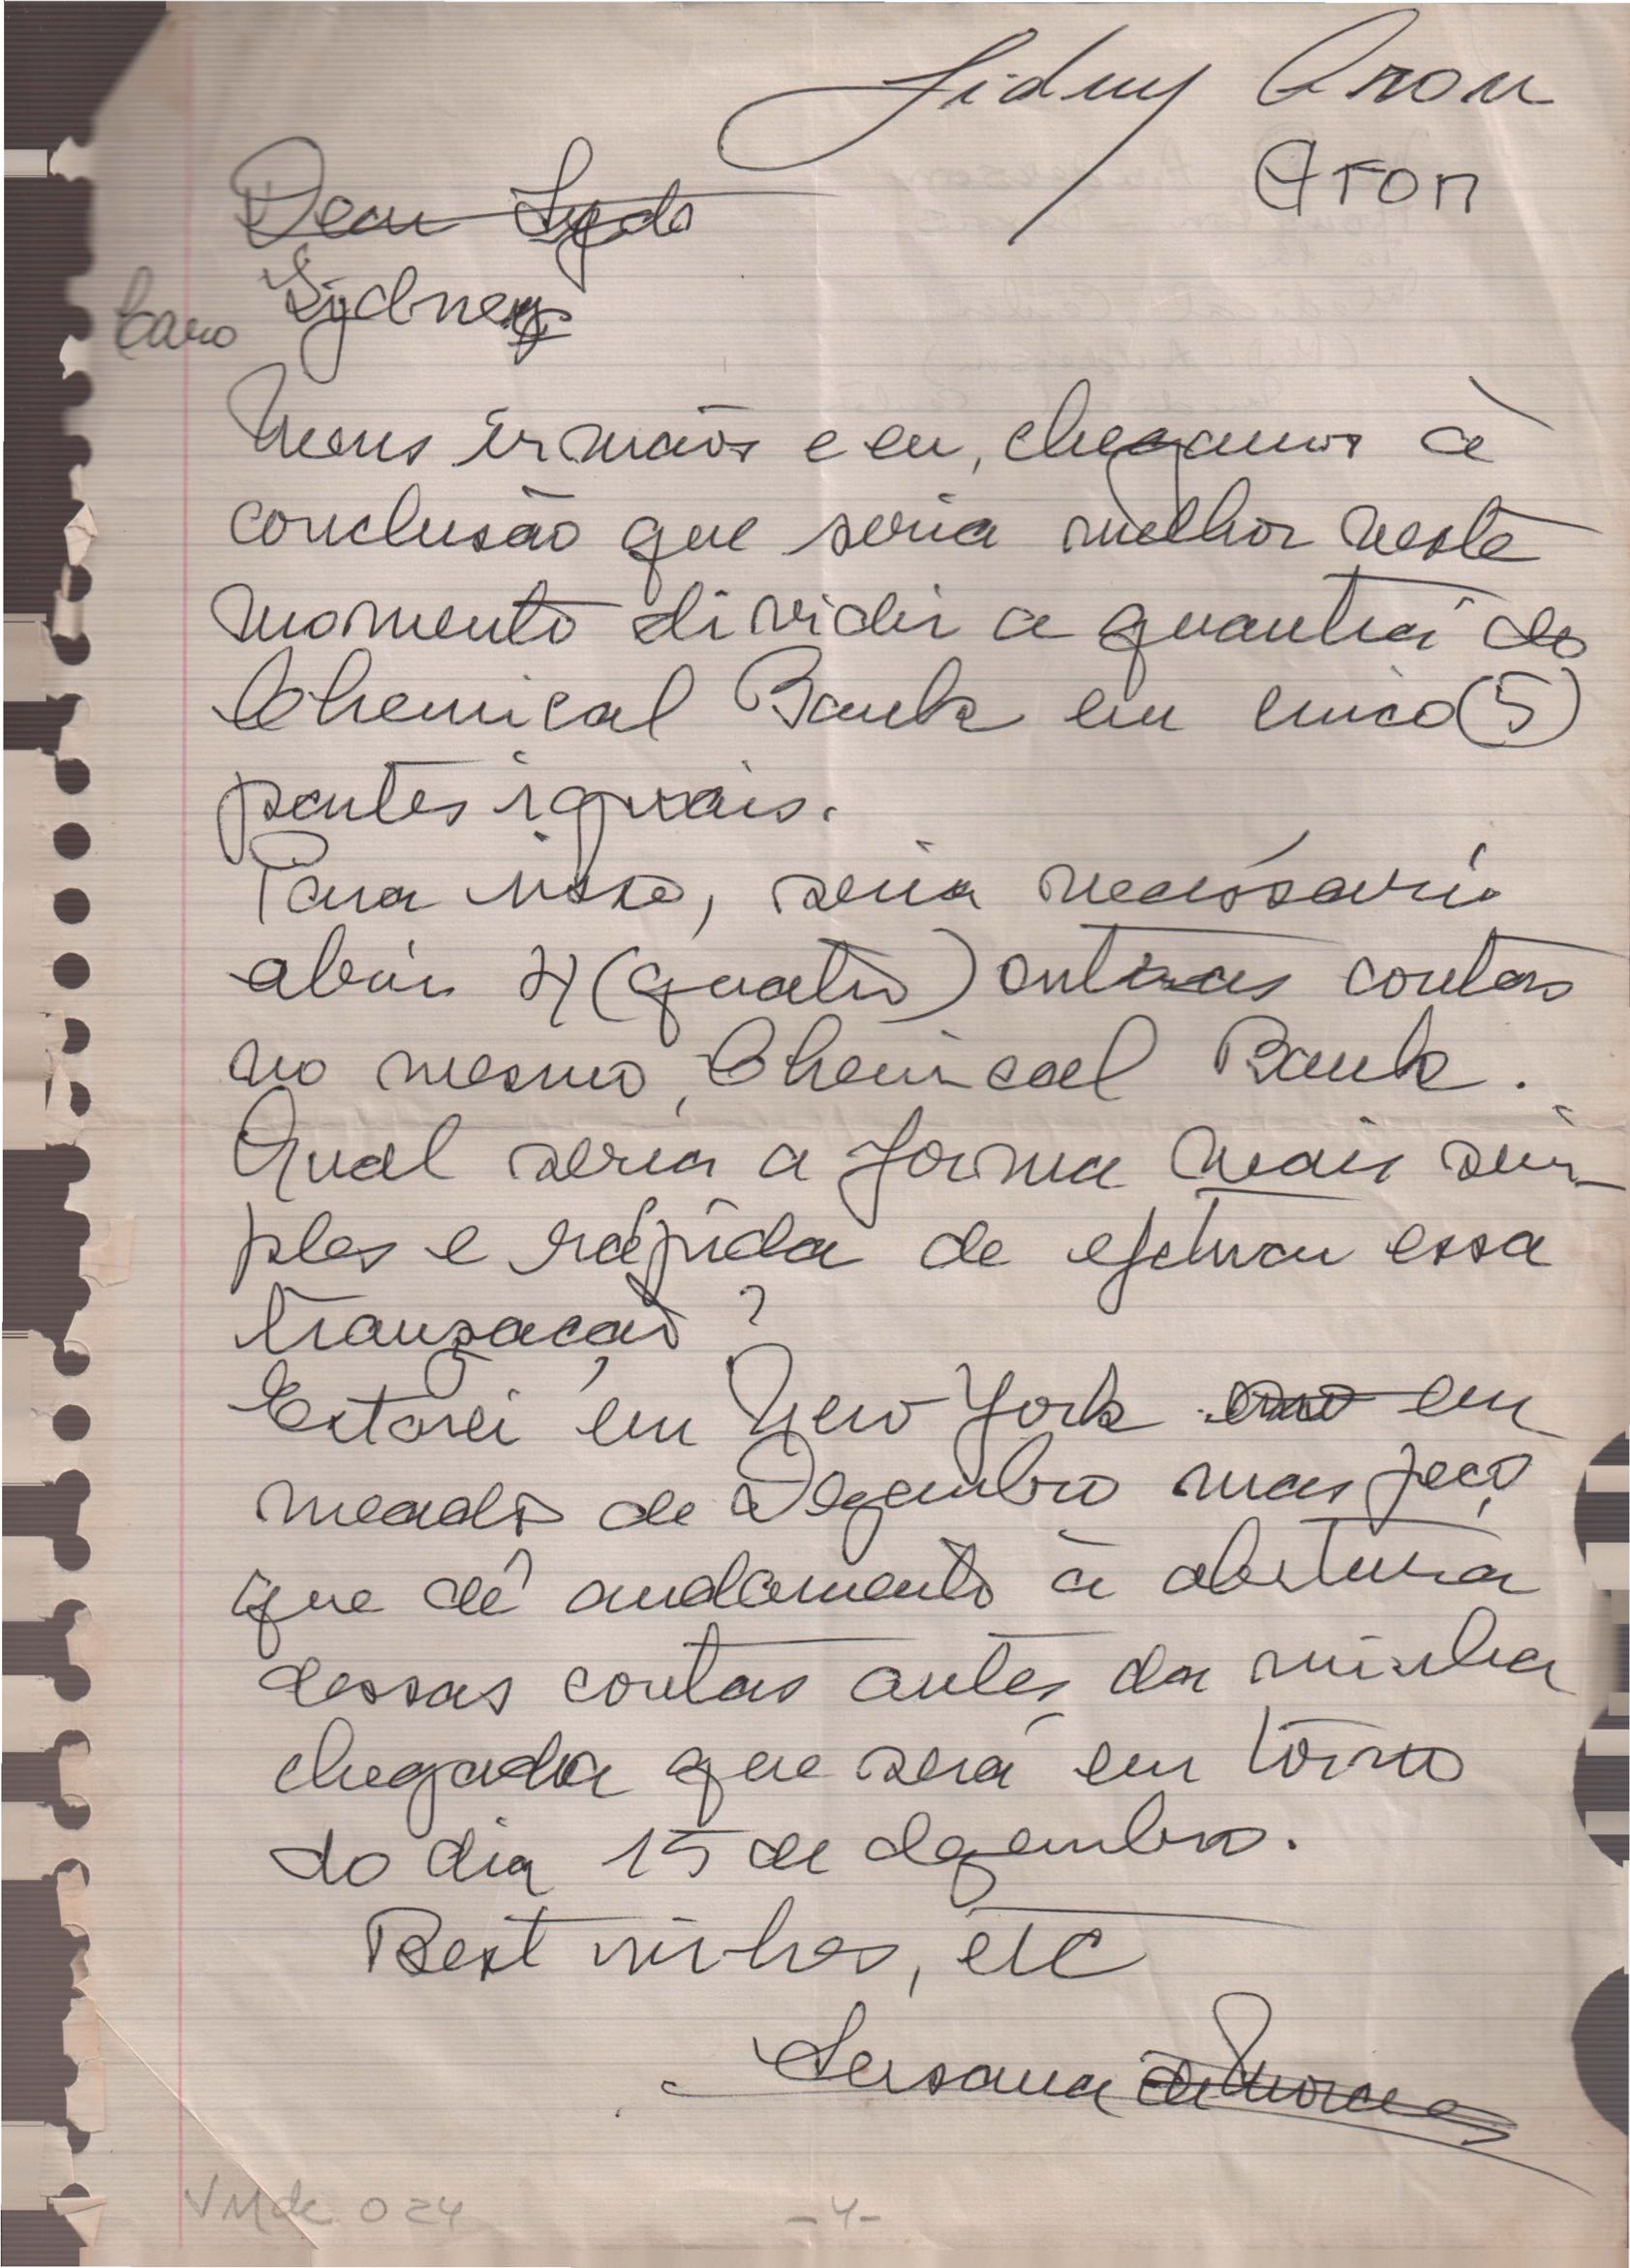 Sidney Aron
Aron
Dear Syd
Caro Sydney
Meus irmãos e eu, chegamos à
conclusão que seria melhor neste
momento dividir a quantia do
Chemical Bank em cinco (5)
partes iguais.
Para isso, seria necessário
abrir 4 (quatro) outras contas
no mesmo, Chemical Bank.
Qual seria a forma mais sim-
ples e rápida de efetuar essa
transação?
Estarei em New York em
meados de Dezembro mas peço
que dê andamento à abertura
dessas contas antes da minha
chegada que será em tôrno
do dia 15 de dezembro.
Best wishes, etc
Susana de Moraes
VMde 024
-4-